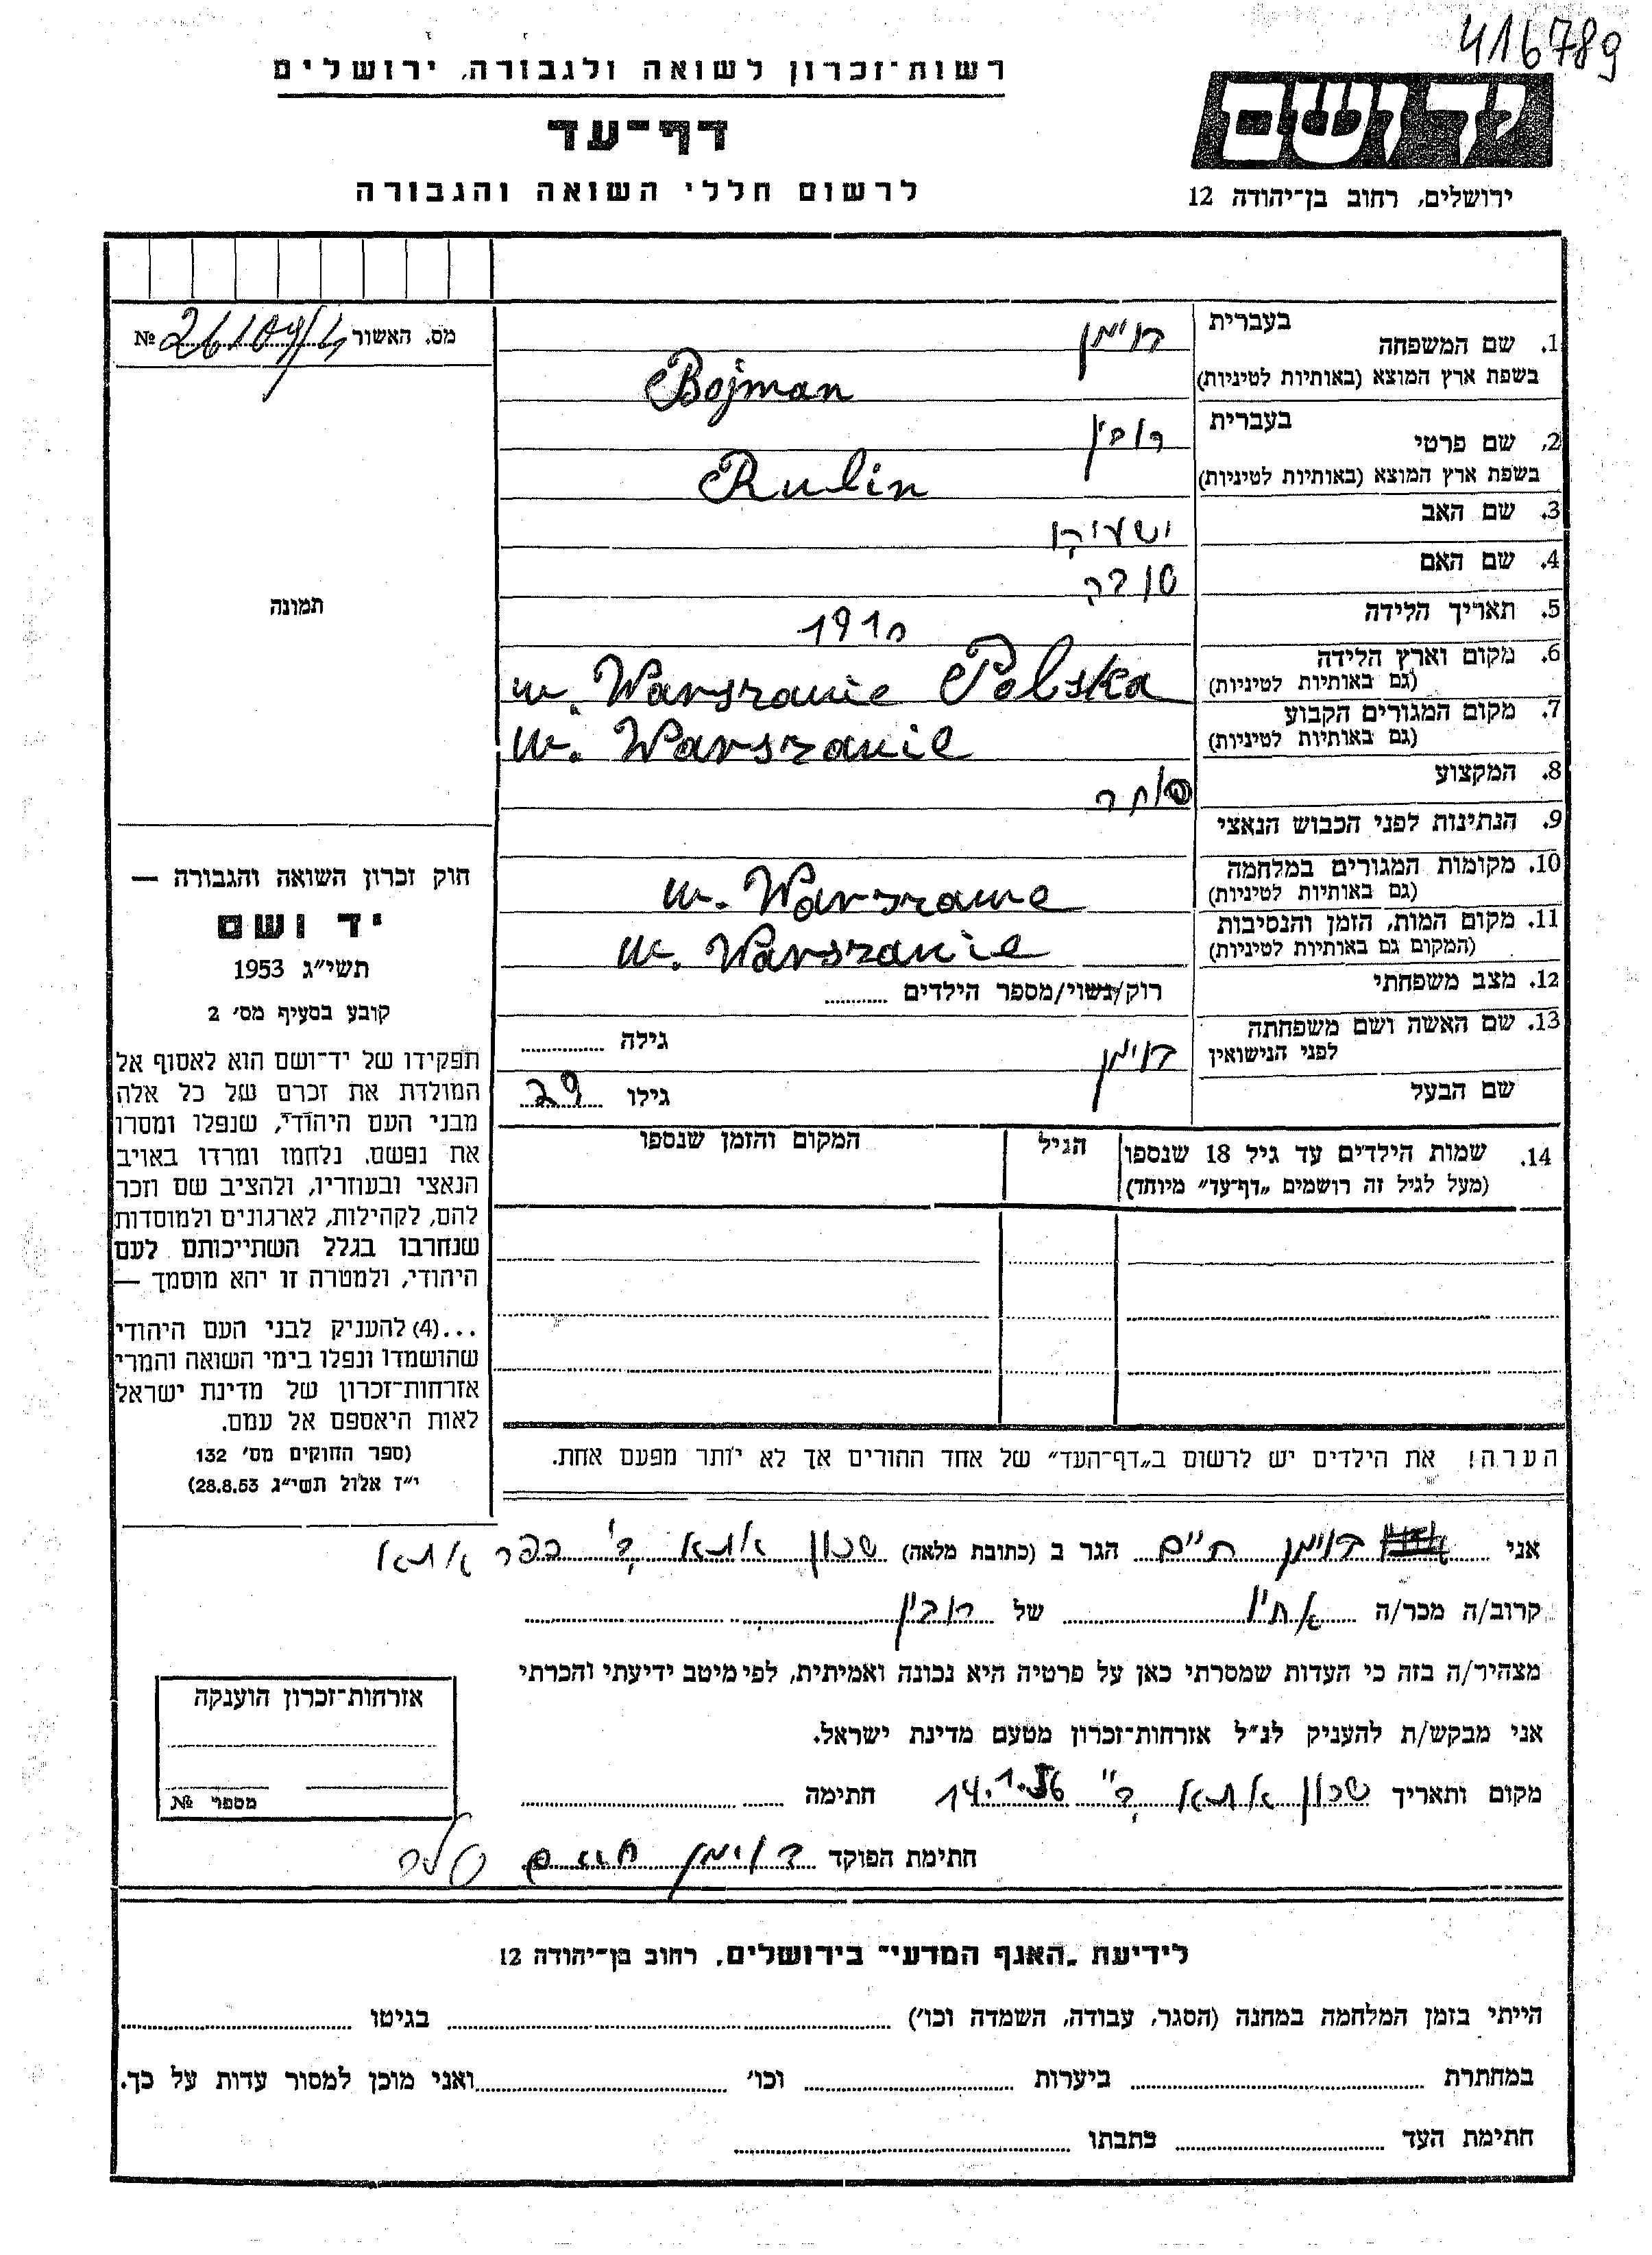 416789
רשות־זכרון לשואה ולגבורה, ירושלים
יד ושם
דף־עד
לרשום חללי השואה והגבורה
ירושלים, רחוב בן־יהודה 12
מס. האשור №
1. שם המשפחה בעברית בוימן
בשפת ארץ המוצא (באותיות לטיניות) Bojman
2. שם פרטי בעברית רובין
בשפת ארץ המוצא (באותיות לטיניות) Rubin
3. שם האב ישעיהו
4. שם האם
5. תאריך הלידה 1910
6. מקום וארץ הלידה (גם באותיות לטיניות) w. Warszawie Polska
7. מקום המגורים הקבוע (גם באותיות לטיניות) w. Warszawie
8. המקצוע סוחר
9. הנתינות לפני הכבוש הנאצי
10. מקומות המגורים במלחמה (גם באותיות לטיניות) w. Warszawie
11. מקום המות, הזמן והנסיבות (המקום גם באותיות לטיניות) w. Warszawie
12. מצב משפחתי רוק/נשוי/מספר הילדים
13. שם האשה ושם משפחתה לפני הנישואין בוימן גילה
שם הבעל גילו 29
14. שמות הילדים עד גיל 18 שנספו הגיל המקום והזמן שנספו
(מעל לגיל זה רושמים „דף־עד” מיוחד)
תמונה
חוק זכרון השואה והגבורה —
יד ושם
תשי״ג 1953
קובע בסעיף מס׳ 2
תפקידו של יד־ושם הוא לאסוף אל
המולדת את זכרם של כל אלה
מבני העם היהודי, שנפלו ומסרו
את נפשם, נלחמו ומרדו באויב
הנאצי ובעוזריו, ולהציב שם וזכר
להם, לקהילות, לארגונים ולמוסדות
שנחרבו בגלל השתייכותם לעם
היהודי, ולמטרה זו יהא מוסמך —
...(4) להעניק לבני העם היהודי
שהושמדו ונפלו בימי השואה והמרי
אזרחות־זכרון של מדינת ישראל
לאות היאספם אל עמם.
(ספר החוקים מס׳ 132
י״ז אלול תשי״ג 28.8.53)
הערה! את הילדים יש לרשום ב„דף־העד” של אחד ההורים אך לא יותר מפעם אחת.
אני בוימן חיים הגר ב (כתובת מלאה) שכון אתא ב' כפר אתא
קרוב/ה מכר/ה אחיו של רובין
מצהיר/ה בזה כי העדות שמסרתי כאן על פרטיה היא נכונה ואמיתית, לפי מיטב ידיעתי והכרתי
אני מבקש/ת להעניק לנ״ל אזרחות־זכרון מטעם מדינת ישראל.
מקום ותאריך שכון אתא ב" 14.1.56 חתימה
חתימת הפוקד בוימן חיים
אזרחות־זכרון הוענקה
מספר №
לידיעת „האגף המדעי” בירושלים, רחוב בן־יהודה 12
הייתי בזמן המלחמה במחנה (הסגר, עבודה, השמדה וכו׳) בגיטו
במחתרת ביערות וכו׳ ואני מוכן למסור עדות על כך.
חתימת העד כתבתו